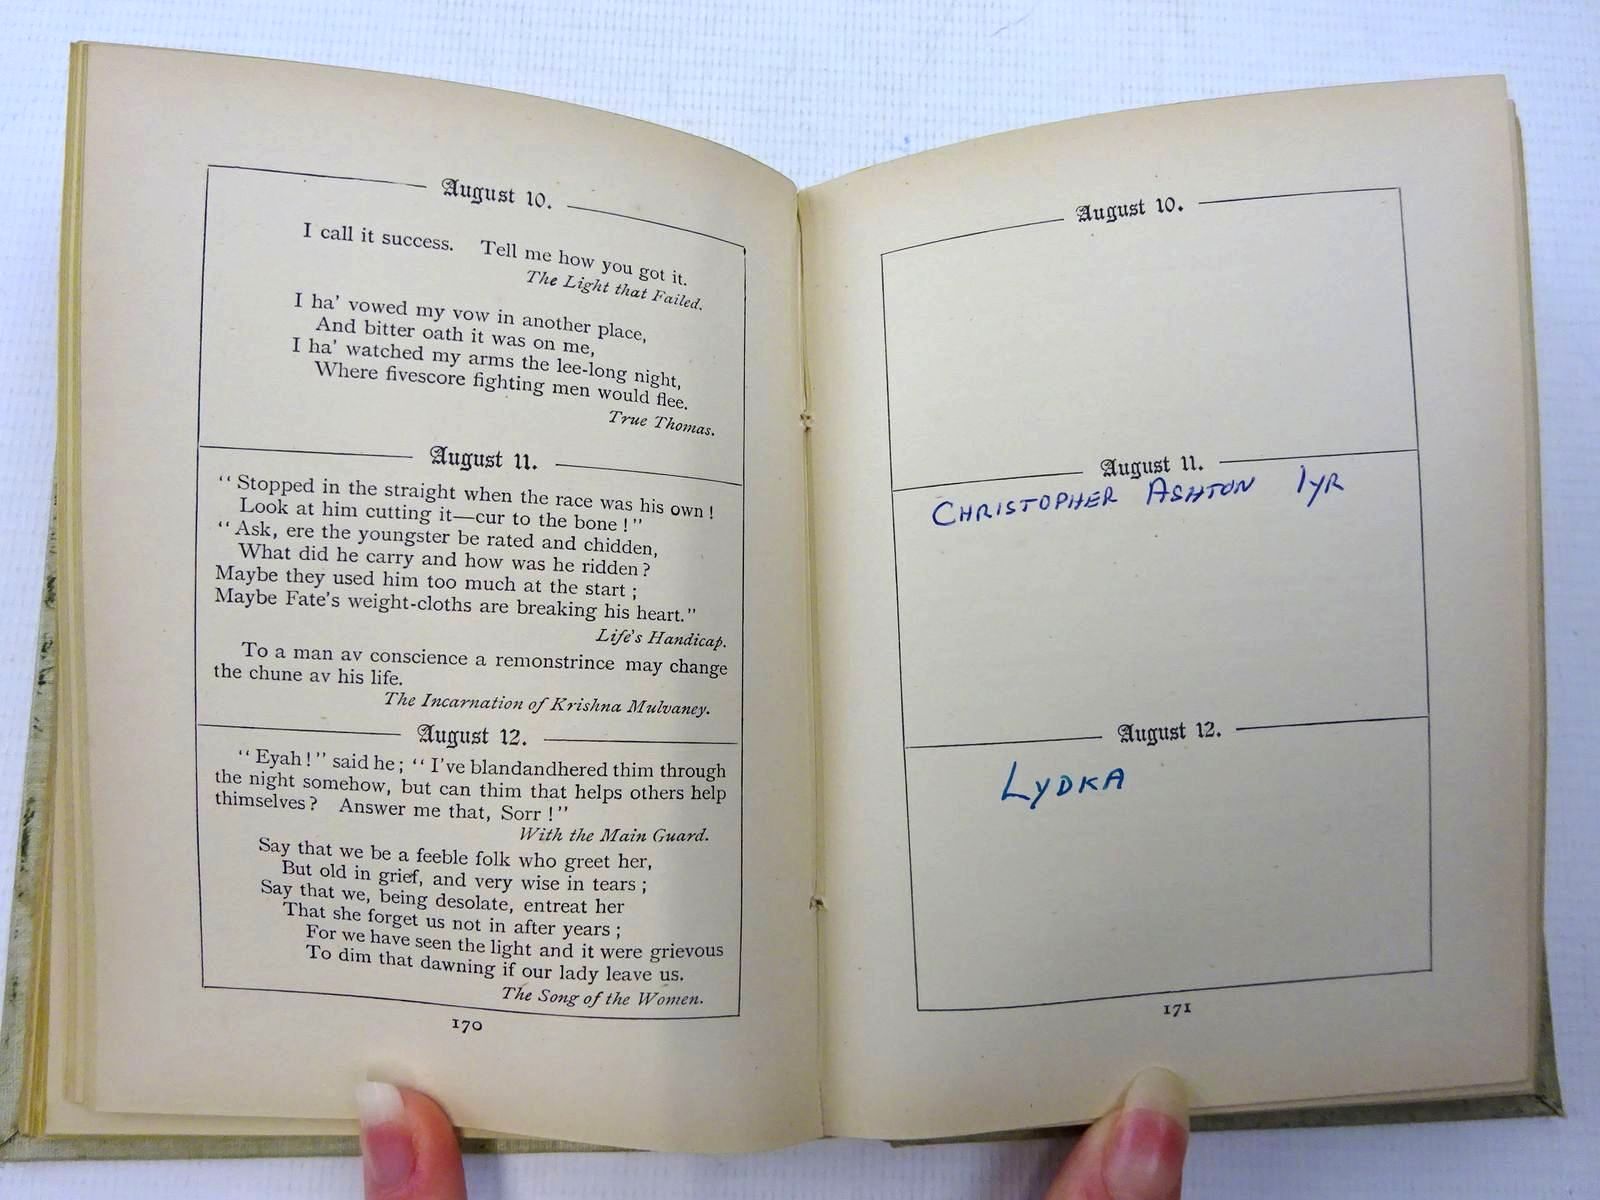 August 10.
I call it success. Tell me how you got it.
The Light that Failed.
I ha' vowed my vow in another place,
And bitter oath it was on me,
I ha' watched my arms the lee-long night,
Where fivescore fighting men would flee.
True Thomas.
August 11.
"Stopped in the straight when the race was his own!
Look at him cutting it—cur to the bone!"
"Ask, ere the youngster be rated and chidden,
What did he carry and how was he ridden?
Maybe they used him too much at the start;
Maybe Fate's weight-cloths are breaking his heart."
Life's Handicap.
To a man av conscience a remonstrince may change
the chune av his life.
The Incarnation of Krishna Mulvaney.
August 12.
"Eyah!" said he; "I've blandandhered thim through
the night somehow, but can thim that helps others help
thimselves? Answer me that, Sorr!"
With the Main Guard.
Say that we be a feeble folk who greet her,
But old in grief, and very wise in tears;
Say that we, being desolate, entreat her
That she forget us not in after years;
For we have seen the light and it were grievous
To dim that dawning if our lady leave us.
The Song of the Women.
170
August 10.
August 11.
CHRISTOPHER ASHTON 1YR
August 12.
LYDKA
171